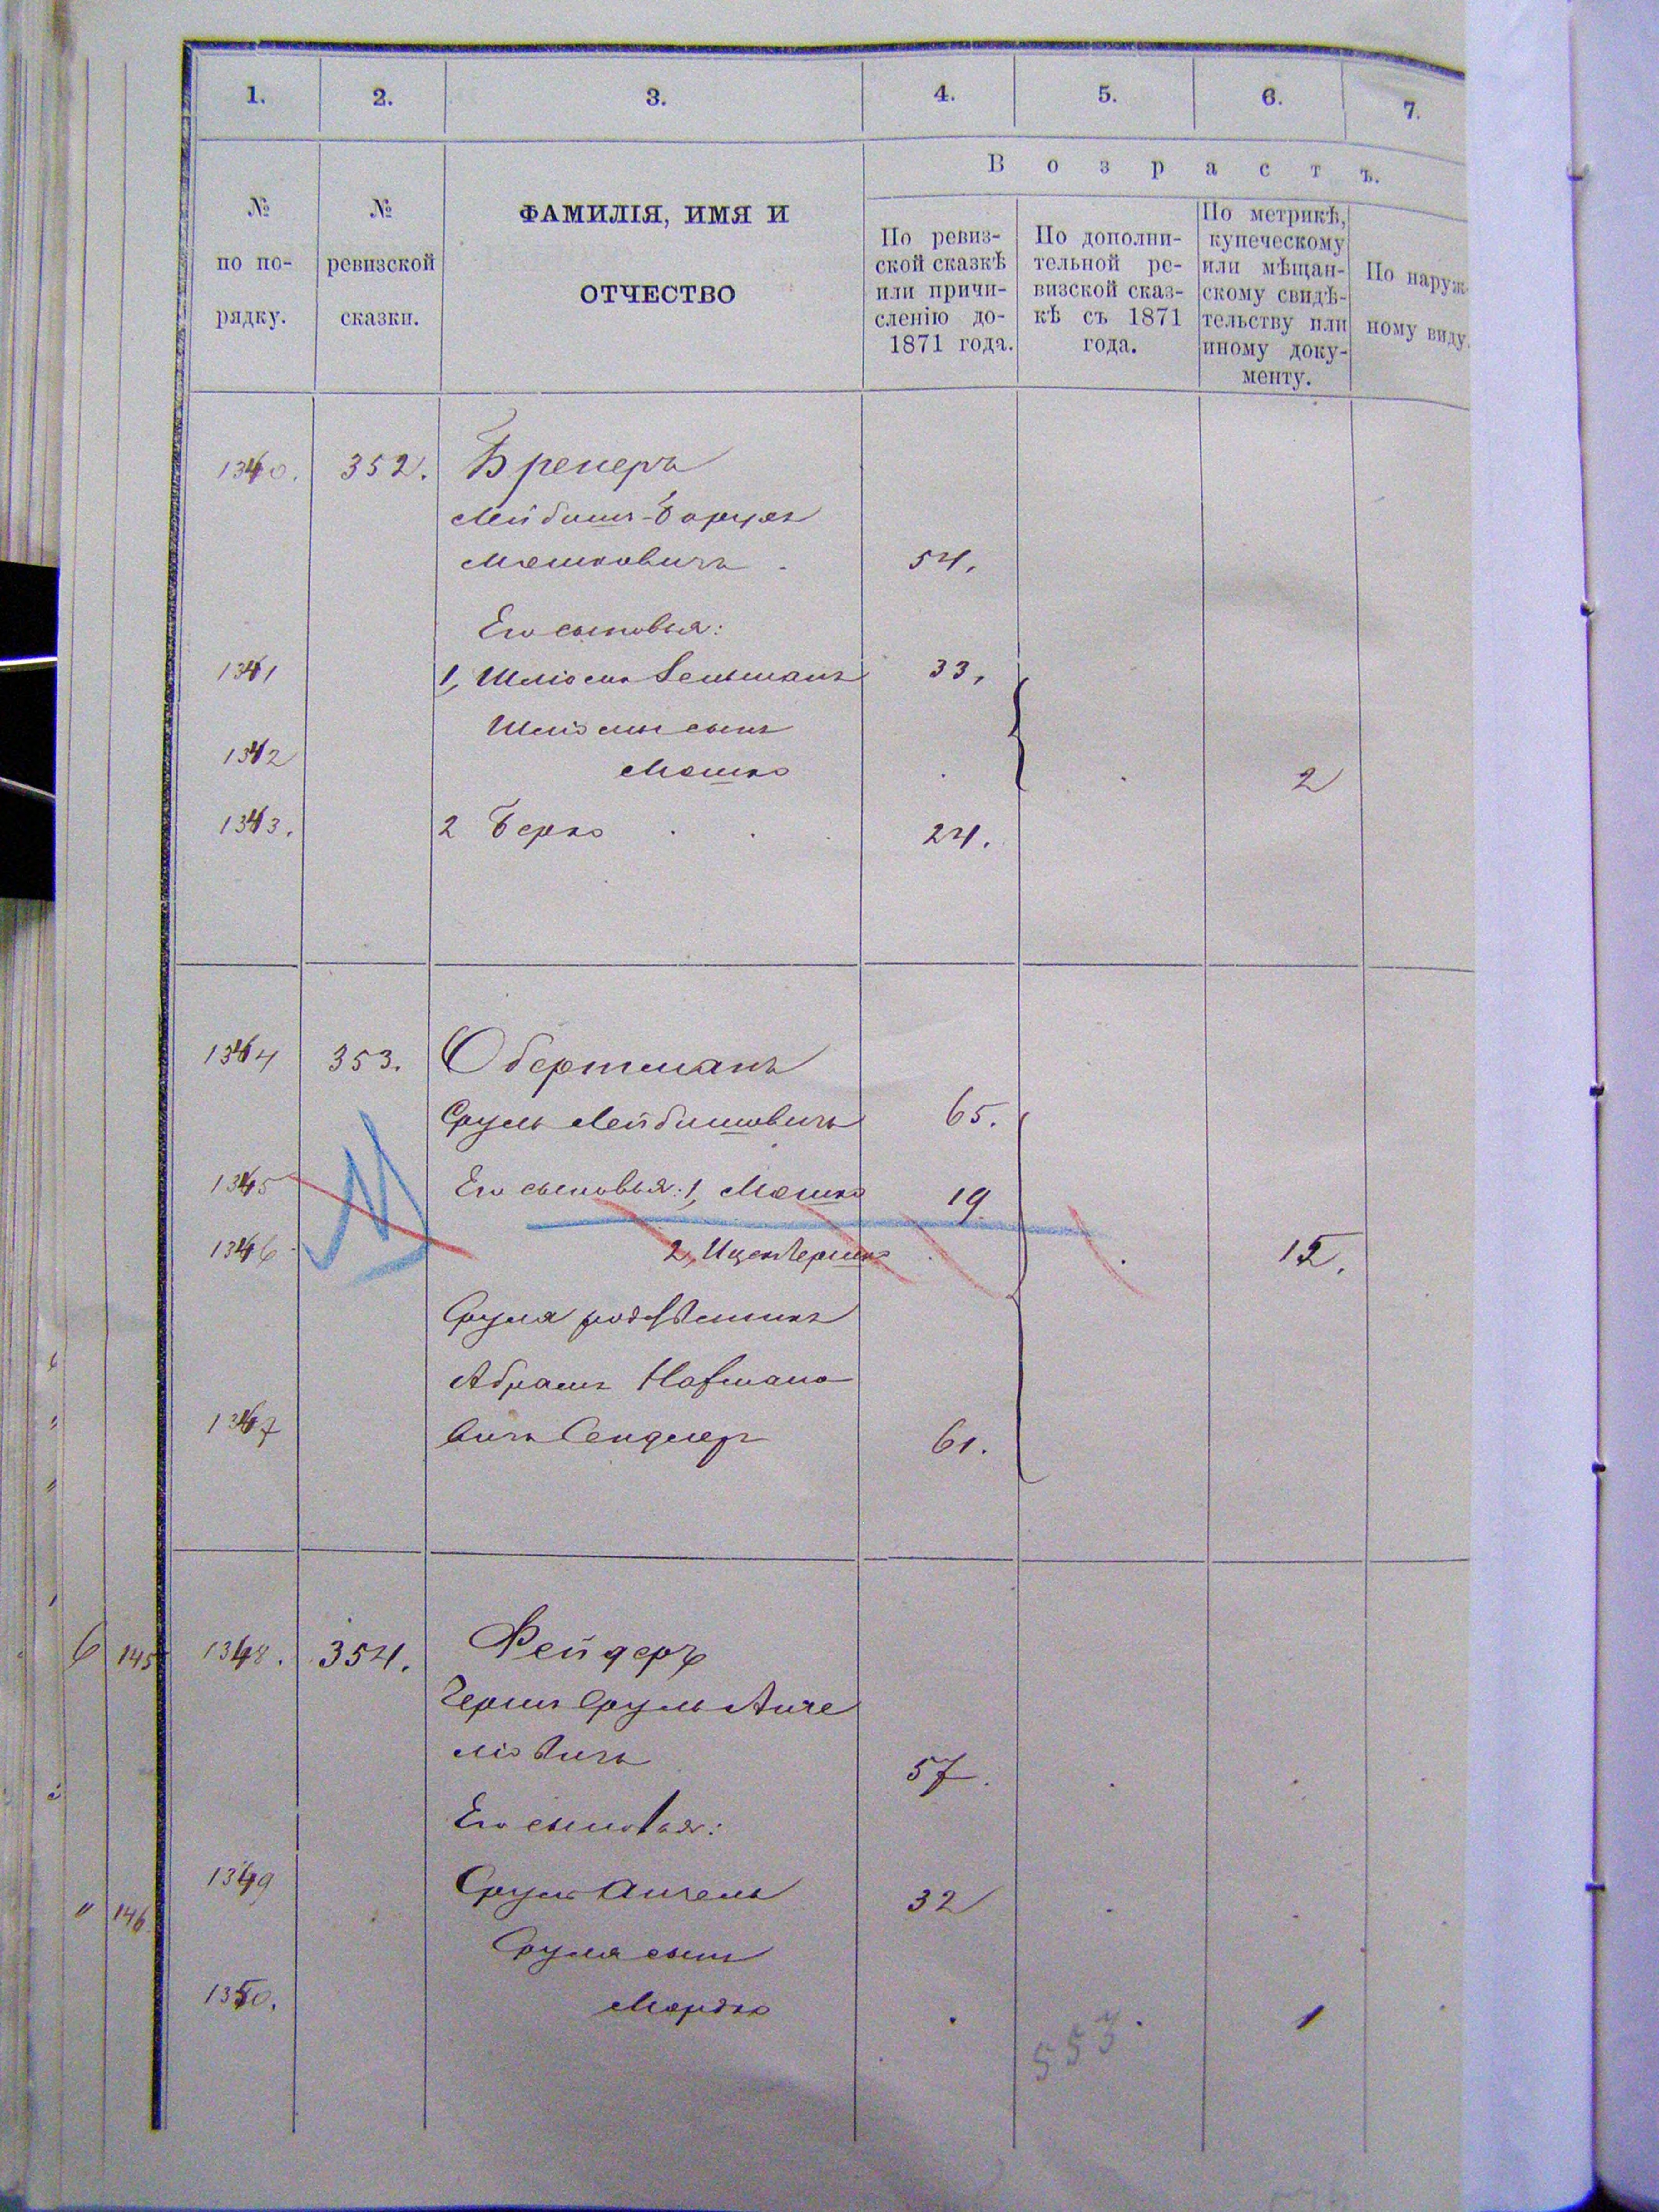 1. 2. 3. 4. 5. 6. 7.
№ по по- рядку.
№ ревизской сказки.
ФАМИЛІЯ, ИМЯ И
ОТЧЕСТВО
Возрастъ.
По ревиз-
ской сказкѣ
или причи-
сленію до-
1871 года.
По дополни-
тельной ре-
визской сказ-
кѣ съ 1871
года.
По метрикѣ,
купеческому
или мѣщан-
скому свидѣ-
тельству или
иному доку-
менту.
По наруж-
ному виду.
1340. 352. Бренеръ
Лейбишъ-Борухъ
Мошковичъ 54.
Его сыновья:
1341 1, Шліома Зельманъ 33,
Шліомы сынъ
1342 Мошко 2
1343. 2 Берко 24.
1344 353. Обертманъ
Сруль Лейбишовичъ 65.
1345 Его сыновья: 1, Мошко 19.
1346 2, Ицекъ Гершко 15.
Сруля родственникъ
Абрамъ Нафмано
1347 вичъ 61.
6 145 1348. 354. Фейдеръ
Гершъ Сруль Анче
ліовичъ 57.
Его сыновья:
" 146 1349 Сруль Анчель 32
Сруля сынъ
1350. Мордко 1
553